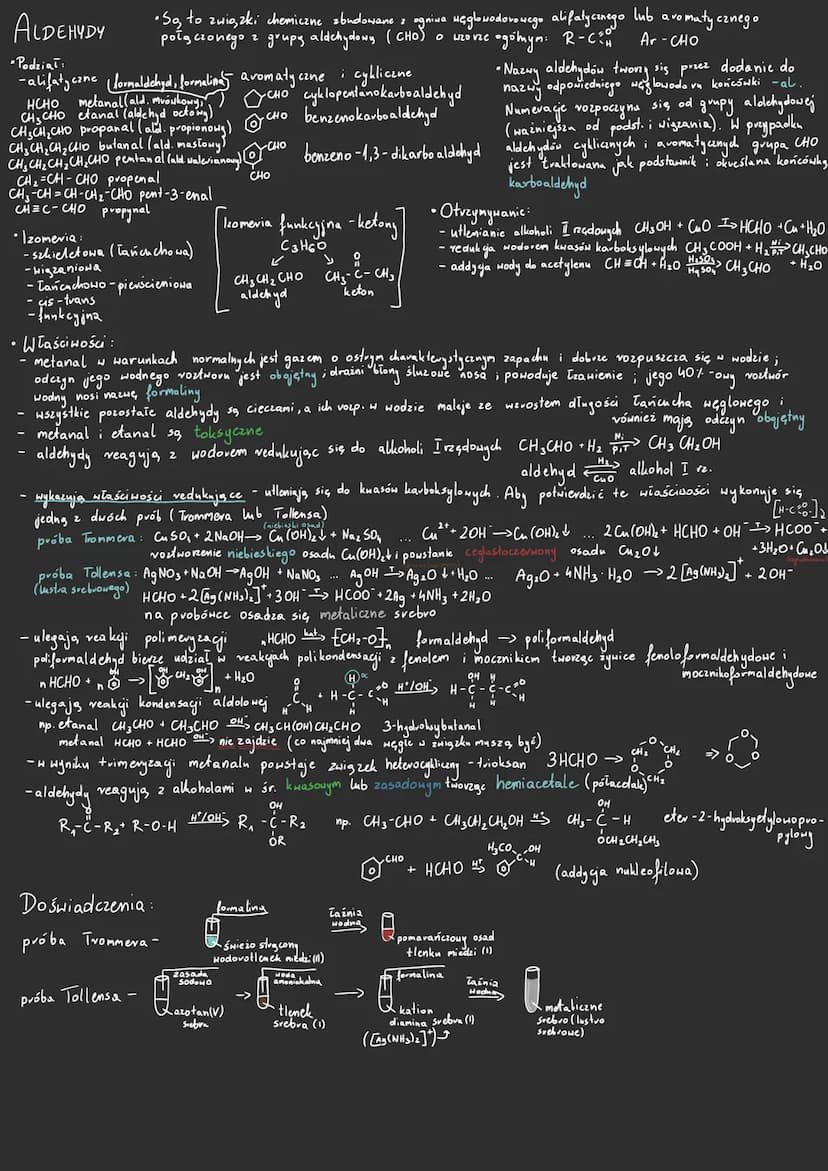 ALDEHYDY
• Są to związki chemiczne zbudowane z ogniwa węglowodorowego alifatycznego lub aromatycznego
połączonego z grupą aldehydową (CHO) o wzorze ogólnym: R-C=O H Ar-CHO
• Podział:
- alifatyczne
(formaldehyd, formalina)
HCHO metanal (ald. mrówkowy)
CH3CHO etanal (aldehyd octowy)
CH3CH2CHO propanal (ald. propionowy)
CH3CH2CH2CHO butanal (ald. masłowy)
CH3CH2CH2CH2CHO pentanal (ald. walerianowy)
CH2=CH-CHO propenal
CH3-CH=CH-CH2-CHO pent-3-enal
CH≡C-CHO propynal
- aromatyczne i cykliczne
CHO cyklopentanokarboaldehyd
CHO benzenokarboaldehyd
CHO benzeno-1,3-dikarboaldehyd
CHO
• Nazwy aldehydów tworzy się przez dodanie do
nazwy odpowiedniego węglowodoru końcówki -al.
Numerację rozpoczyna się od grupy aldehydowej
(ważniejsza od podst. i wiązania). W przypadku
aldehydów cyklicznych i aromatycznych grupa CHO
jest traktowana jak podstawnik i określana końcówką
karboaldehyd
• Izomeria:
- szkieletowa (łańcuchowa)
- wiązaniowa
- łańcuchowo-pierścieniowa
- cis-trans
- funkcyjna
Izomeria funkcyjna - ketony
C3H6O
CH3CH2CHO CH3-C-CH3
O
aldehyd keton
• Otrzymywanie:
- utlenianie alkoholi I rzędowych CH3OH + CuO T→ HCHO + Cu + H2O
- redukcja wodorem kwasów karboksylowych CH3COOH + H2 Ni p,T→ CH3CHO + H2O
- addycja wody do acetylenu CH≡CH + H2O H2SO4 HgSO4→ CH3CHO
• Właściwości:
- metanal w warunkach normalnych jest gazem o ostrym charakterystycznym zapachu i dobrze rozpuszcza się w wodzie;
odczyn jego wodnego roztworu jest obojętny; drażni błony śluzowe nosa i powoduje łzawienie; jego 40%-owy roztwór
wodny nosi nazwę formaliny
- wszystkie pozostałe aldehydy są cieczami, a ich rozp. w wodzie maleje ze wzrostem długości łańcucha węglowego i
również mają odczyn obojętny
- metanal i etanal są toksyczne
- aldehydy reagują z wodorem redukując się do alkoholi I rzędowych CH3CHO + H2 Ni p,T→ CH3CH2OH
aldehyd H2 ⇌ CuO alkohol I rz.
- wykazują właściwości redukujące - utleniają się do kwasów karboksylowych. Aby potwierdzić te właściwości wykonuje się
jedną z dwóch prób (Trommera lub Tollensa)
(niebieski osad)
próba Trommera: CuSO4 + 2NaOH → Cu(OH)2↓ + Na2SO4 ... Cu2+ + 2OH- → Cu(OH)2↓ ... 2Cu(OH)2 + HCHO + OH- T→ HCOO- + 3H2O + Cu2O↓
roztworzenie niebieskiego osadu Cu(OH)2↓ i powstanie ceglastoczerwony osadu Cu2O↓
próba Tollensa: AgNO3 + NaOH → AgOH + NaNO3 ... AgOH T→ Ag2O↓ + H2O ... Ag2O + 4NH3·H2O → 2[Ag(NH3)2]+ + 2OH-
(lustra srebrowego) HCHO + 2[Ag(NH3)2]+ + 3OH- T→ HCOO- + 2Ag + 4NH3 + 2H2O
na probówce osadza się metaliczne srebro
- ulegają reakcji polimeryzacji nHCHO kat.→ [CH2-O]n formaldehyd → poliformaldehyd
poliformaldehyd bierze udział w reakcjach polikondensacji z fenolem i mocznikiem tworząc żywice fenoloformaldehydowe i
mocznikoformaldehydowe
n HCHO + n OH → [OH CH2 OH]n + H2O
- ulegają reakcji kondensacji aldolowej
np. etanal CH3CHO + CH3CHO OH-→ CH3CH(OH)CH2CHO 3-hydroksybutanal
metanal HCHO + HCHO OH-→ nie zajdzie (co najmniej dwa węgle w związku muszą być)
- w wyniku trimeryzacji metanalu powstaje związek heterocykliczny - trioksan 3HCHO →
- aldehydy reagują z alkoholami w śr. kwasowym lub zasadowym tworząc hemiacetale (półacetale)
R1-C-R2 + R-O-H H+/OH-→ R1-C-R2 np. CH3-CHO + CH3CH2CH2OH H+→ CH3-C-H eter-1-hydroksyetylowopro-
pylowy
OH OR OH OCH2CH2CH3
CHO + HCHO H+→ H3CO OH C H (addycja nukleofilowa)
Doświadczenia:
próba Trommera -
formalina
świeżo strącony
wodorotlenek miedzi (II)
łaźnia
wodna
pomarańczowy osad
tlenku miedzi (I)
próba Tollensa -
zasada
sodowa
azotan(V)
srebra
woda
amoniakalna
tlenek
srebra (I)
formalina
kation
diamina srebra (I)
([Ag(NH3)2]+)
łaźnia
wodna
metaliczne
srebro (lustro
srebrowe)